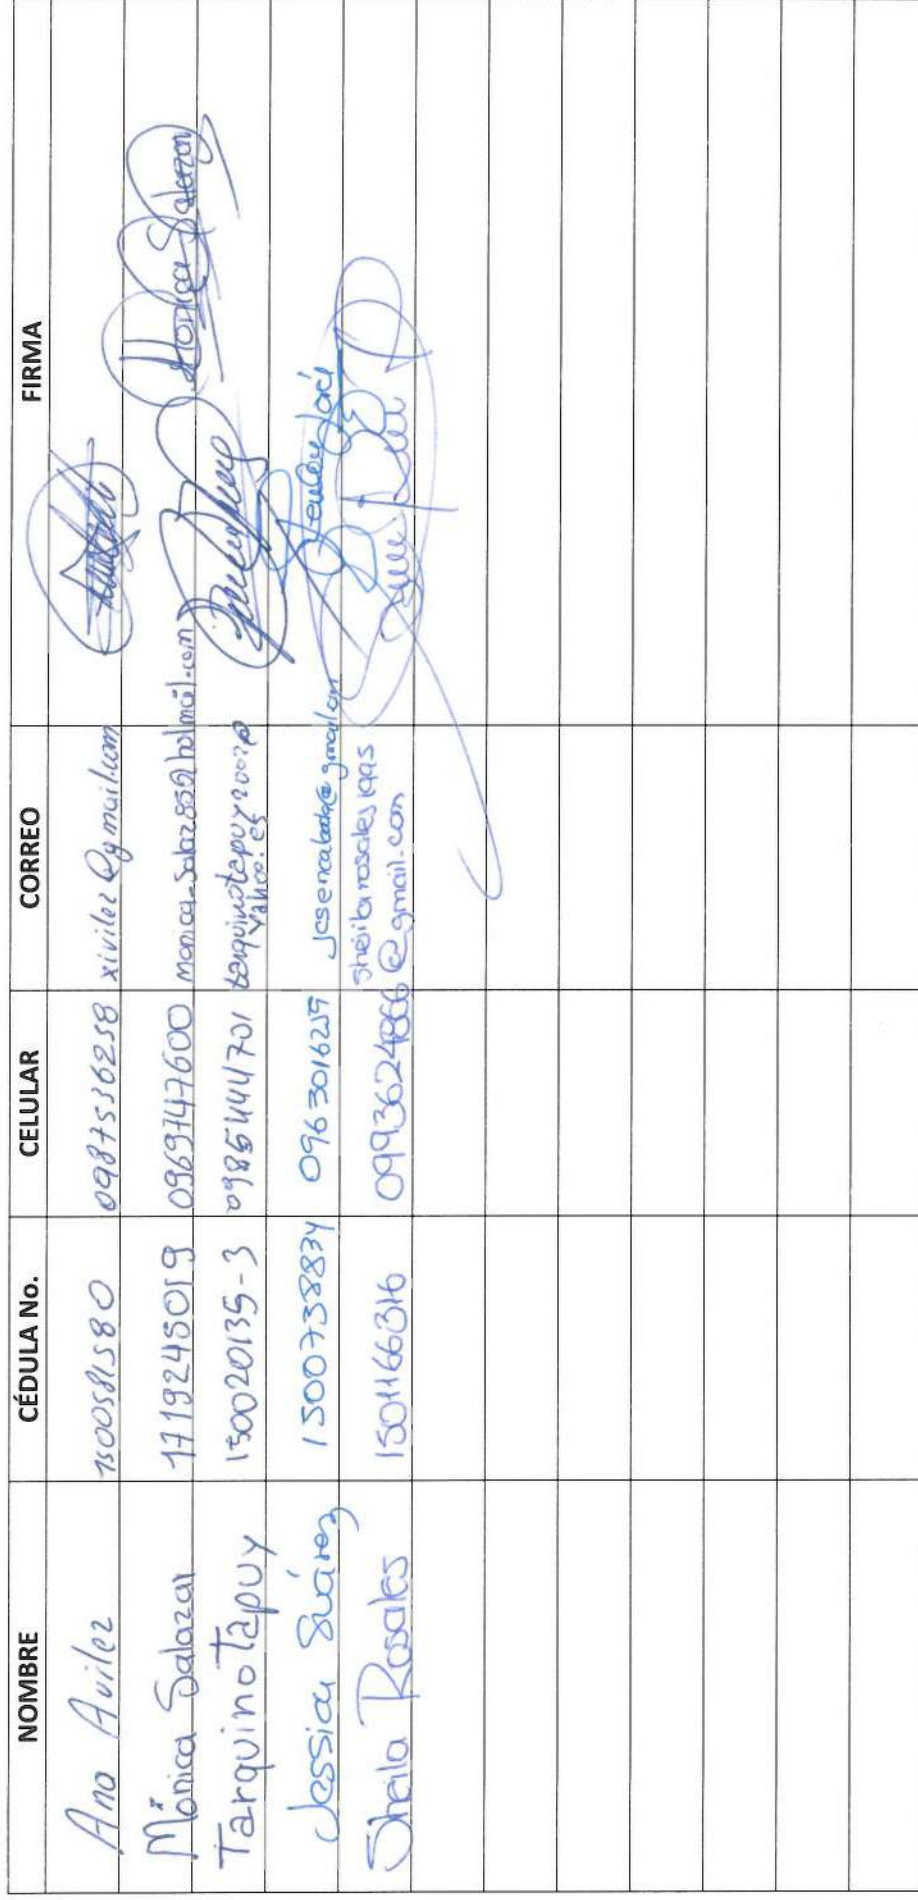 NOMBRE CÉDULA No. CELULAR CORREO FIRMA
Ana Avilez 1500581580 0987536258 xivilez@gmail.com
Mónica Salazar 1719245019 0969747600 monica-salaz852@hotmail.com Monica Salazar
Tarquino Tapuy 150020135-3 0985444701
yahoo.es
Jessica Suárez 1500738834
Sheila Rosales 1501166316 0993624866 sheilarosales1995
@gmail.com